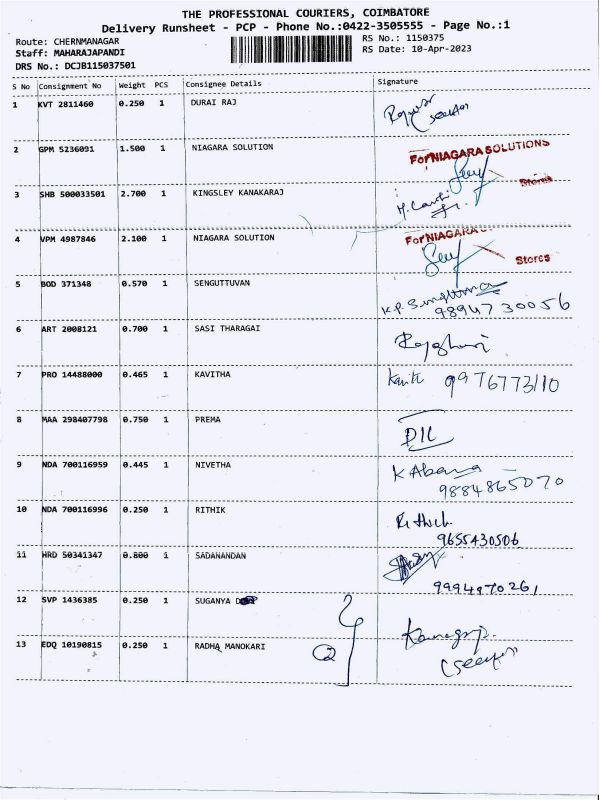 THE PROFESSIONAL COURIERS, COIMBATORE
Delivery Runsheet - PCP - Phone No.:0422-3505555 - Page No.:1
Route: CHERNMANAGAR RS No.: 1150375
Staff: MAHARAJAPANDI RS Date: 10-Apr-2023
DRS No.: DCJB115037501
S No Consignment No Weight PCS Consignee Details Signature
1 KVT 2811460 0.250 1 DURAI RAJ
2 GPM 5236091 1.500 1 NIAGARA SOLUTION For NIAGARA SOLUTIONS
Stores
3 SHB 500033501 2.700 1 KINGSLEY KANAKARAJ
4 VPM 4987846 2.100 1 NIAGARA SOLUTION For NIAGARA
Stores
5 BOD 371348 0.570 1 SENGUTTUVAN
98947 30056
6 ART 2008121 0.700 1 SASI THARAGAI
7 PRO 14488000 0.465 1 KAVITHA 9976773110
8 MAA 298407798 0.750 1 PREMA
9 NDA 700116959 0.445 1 NIVETHA K Abana
9884865070
10 NDA 700116996 0.250 1 RITHIK Rithik
9655430506
11 HRD 50341347 0.800 1 SADANANDAN
9994970261
12 SVP 1436385 0.250 1 SUGANYA
13 EDQ 10190815 0.250 1 RADHA MANOKARI 2